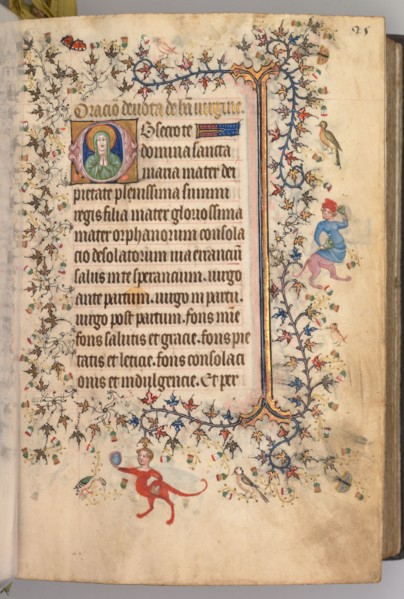 25
Oracio deuota de bā uirgine.
Obsecro te
domina sancta
maria mater dei
pietate plenissima summi
regis filia mater gloriosissima
mater orphanorum consola
cio desolatorum uia erranciū
salus in te sperancium. uirgo
ante partum. uirgo in partu.
uirgo post partum. fons mīe
fons salutis et gracie. fons pie
tatis et leticie. fons consolaci
onis et indulgencie. Et per